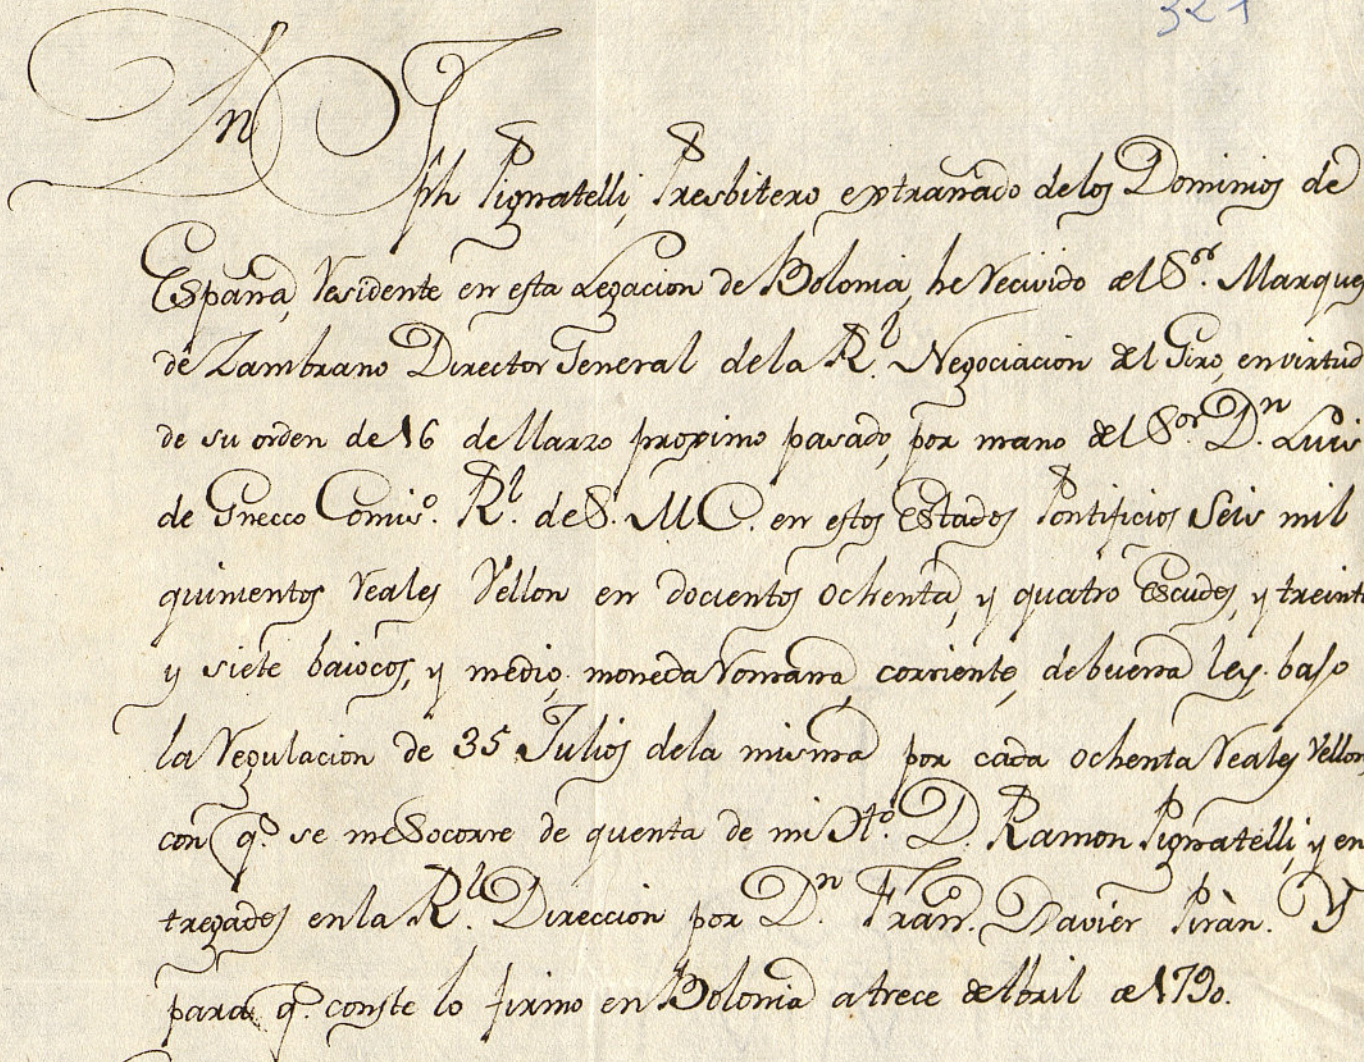 321
Dn
Jph Pignatelli, Presbitero extrañado delos Dominios de
España, residente en esta Legacion de Bolonia, he recivido del Sor. Marques
de Zambrano Director General dela Rl. Negociacion del Giro, en virtud
de su orden de 16 de Marzo proximo pasado, por mano del Sor. Dn. Luis
de Gnecco Comiso. Rl. de S. M C. en estos Estados Pontificios Seis mil
quinientos reales vellon en docientos ochenta, y quatro Escudos, y treinta
y siete baiocos, y medio, moneda romana, corriente, de buena ley. bajo
la regulacion de 35 Julios dela misma por cada ochenta reales vellon,
con qe. se me Socorre de quenta de mi Ho. D. Ramon Pignatelli, y en
tregados en la Rl. Direccion por Dn. Frano. Xavier Piràn. Y
para qe. conste lo firmo en Bolonia a trece de Abril de 1790.